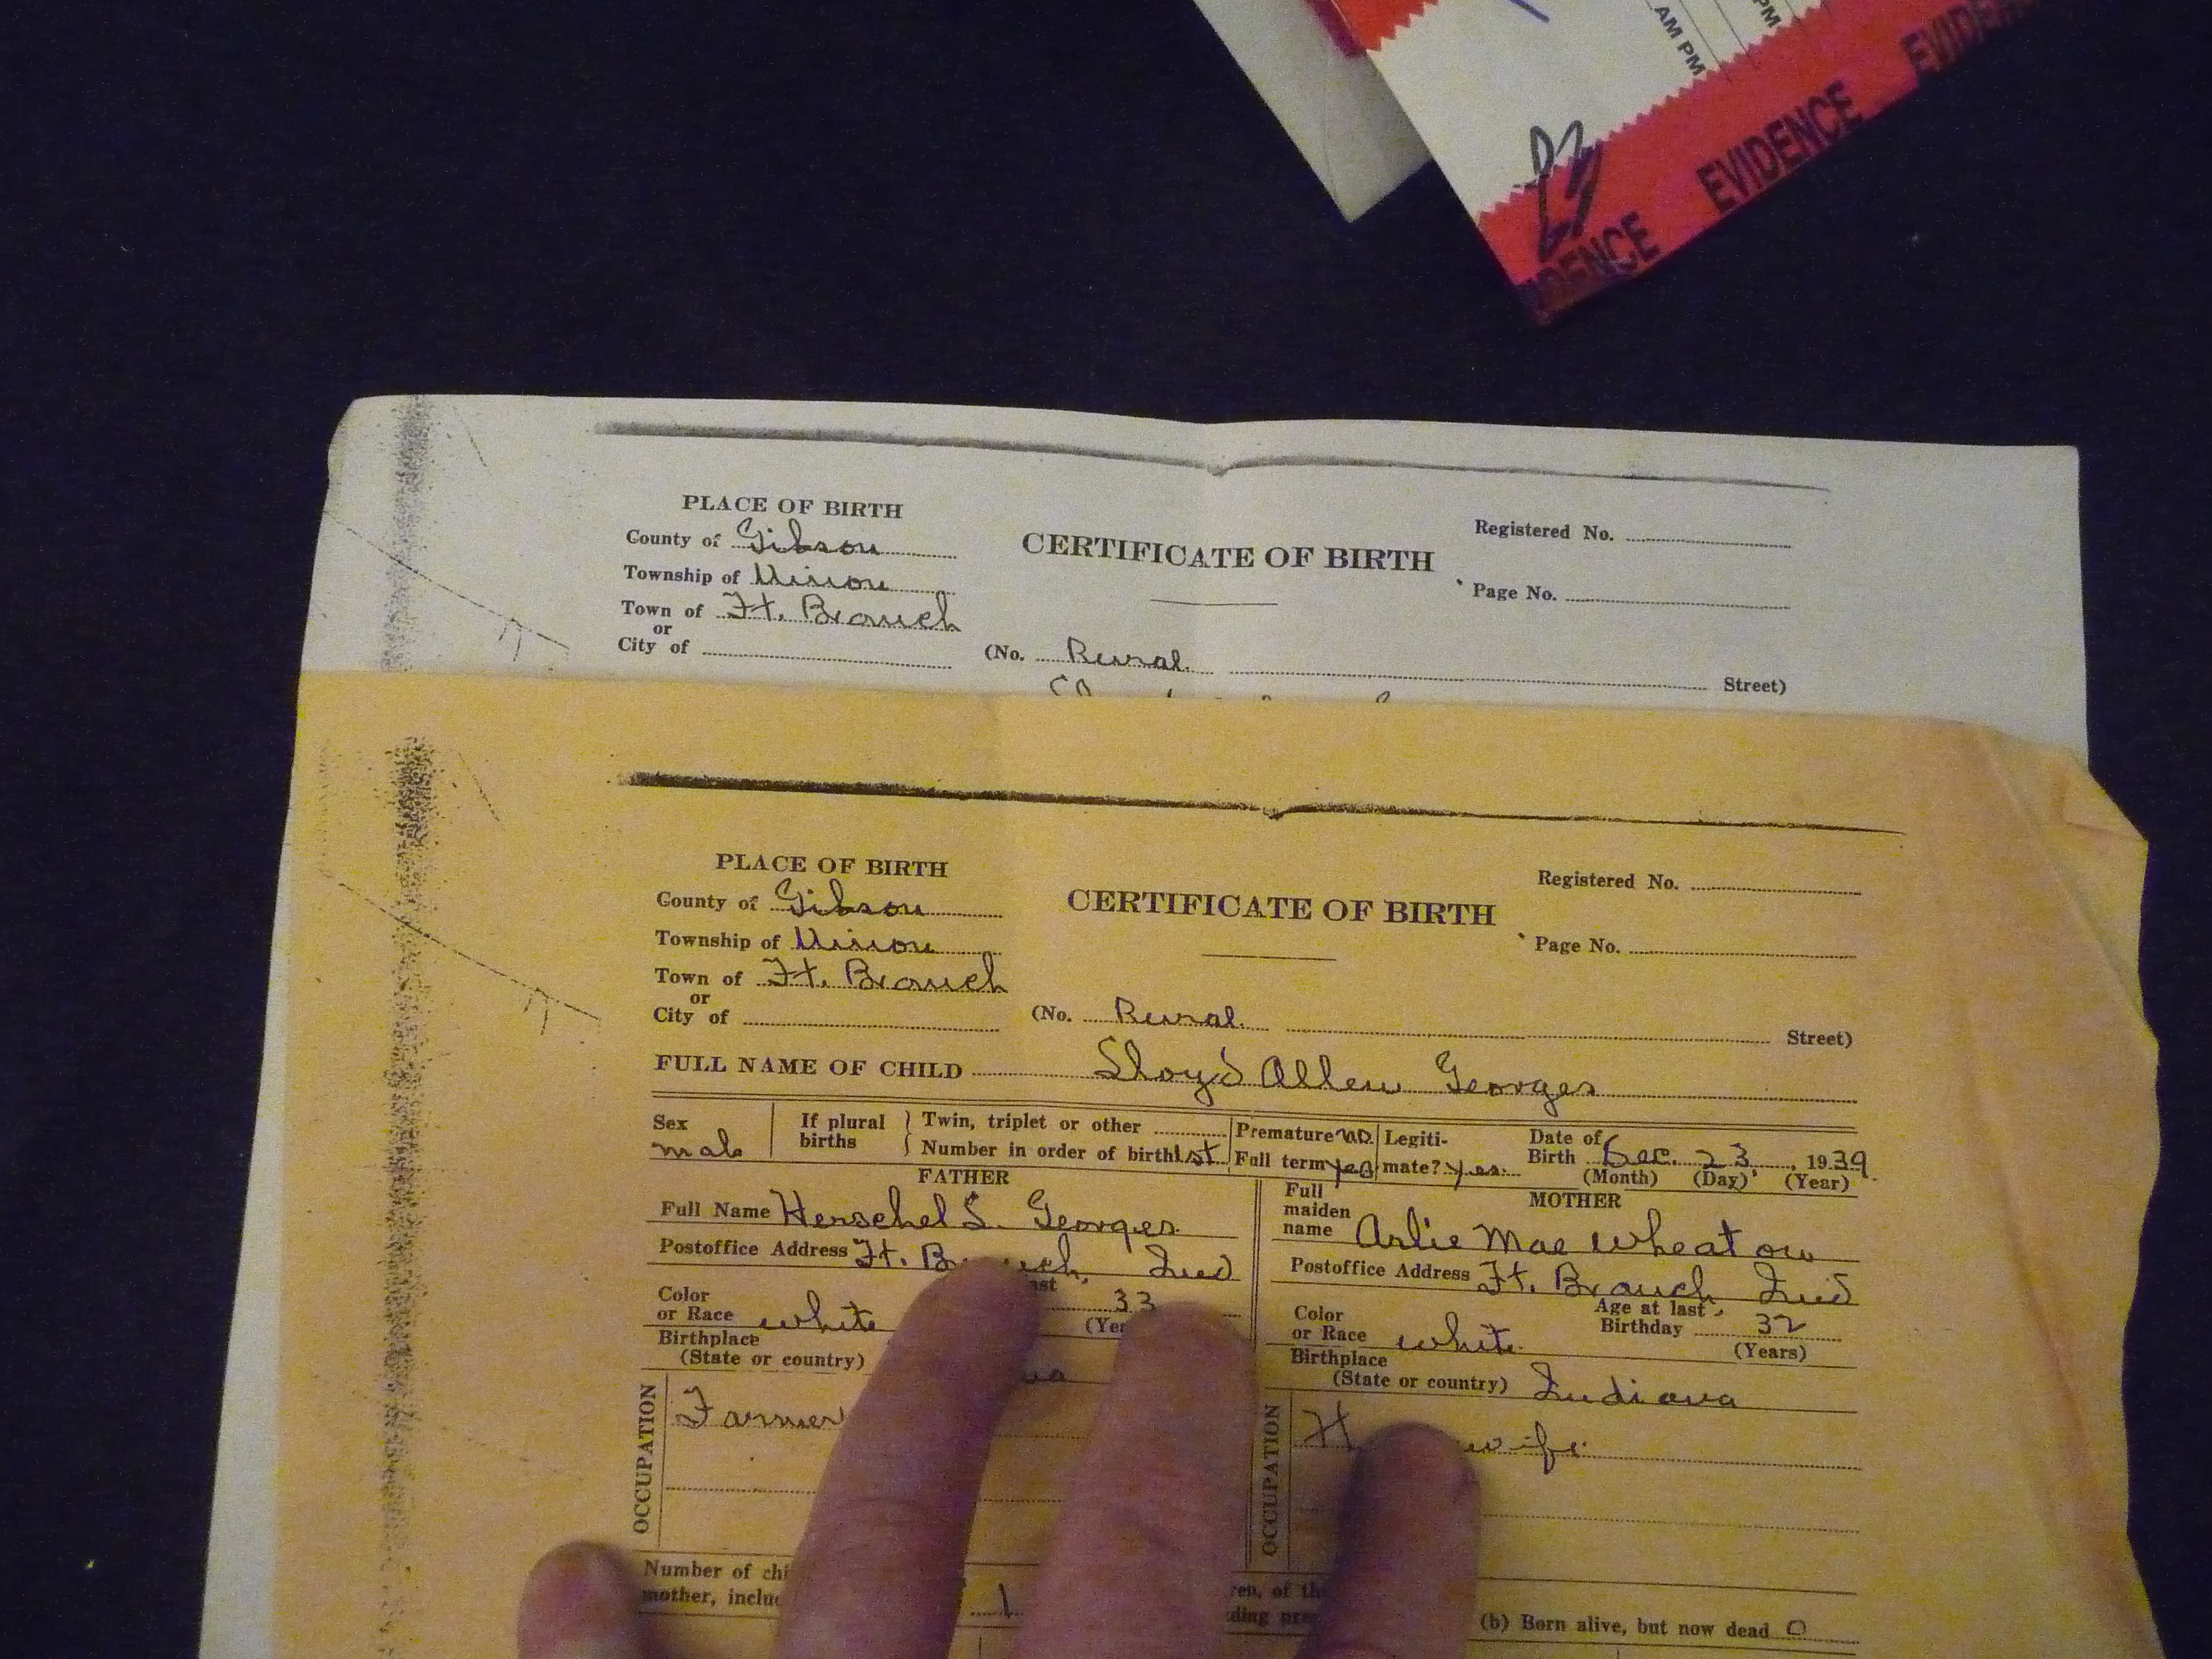 PM
AM PM
EVIDENCE
EVIDENCE
DENCE
PLACE OF BIRTH
County of Gibson
CERTIFICATE OF BIRTH
Registered No.
Township of Union
Page No.
Town of Ft. Branch
or
City of
(No. Rural
Street)
PLACE OF BIRTH
County of Gibson
CERTIFICATE OF BIRTH
Registered No.
Township of Union
Page No.
Town of Ft. Branch
or
City of
(No. Rural
Street)
FULL NAME OF CHILD Lloyd Allen Georges
Sex male
If plural births
Twin, triplet or other
Number in order of birth 1st
Premature no
Full term yes
Legitimate? yes
Date of Birth Dec. 23, 1939
(Month) (Day) (Year)
FATHER
Full Name Herschel L. Georges
Postoffice Address Ft. Branch, Ind
Color or Race white
33
Birthplace
(State or country)
OCCUPATION
Farmer
MOTHER
Full maiden name Arlie Mae Wheaton
Postoffice Address Ft. Branch Ind
Color or Race white
Age at last Birthday 32
(Years)
Birthplace
(State or country) Indiana
OCCUPATION
wife
Number of
mother, 1
(b) Born alive, but now dead 0